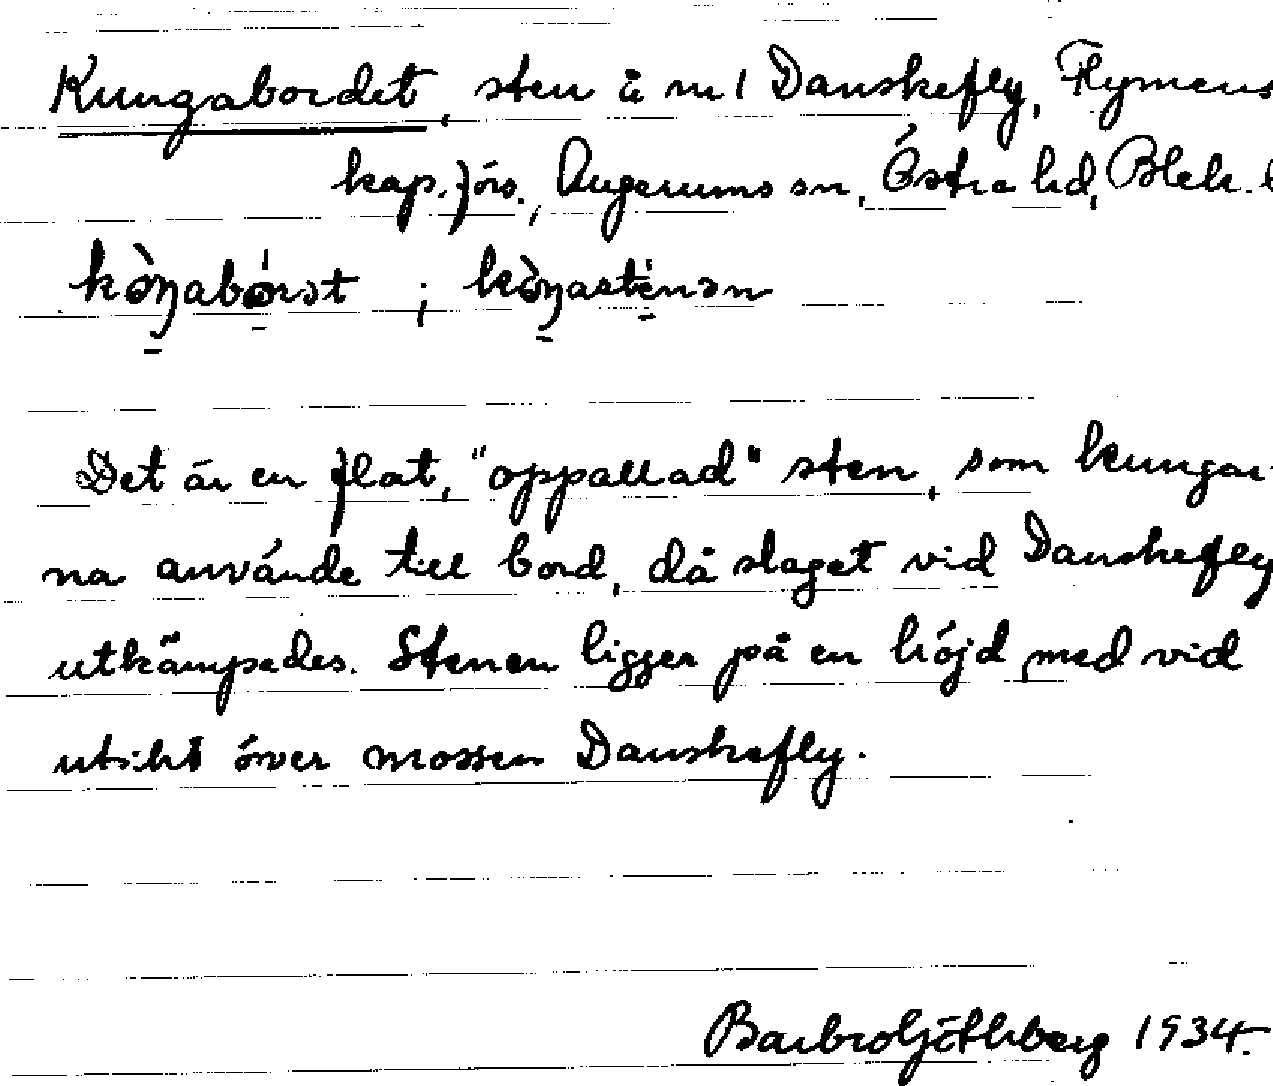 Kungabordet, sten å n:1 Danskefly, Flymens
kap.förs., Augerums sn, Östra hd, Blek. l
Det är en flat, "oppallad" sten, som kungar-
na använde till bord, då slaget vid Danskefly
utkämpades. Stenen ligger på en höjd med vid
utsikt över mossen Danskefly.
Barbro Göthberg 1934.